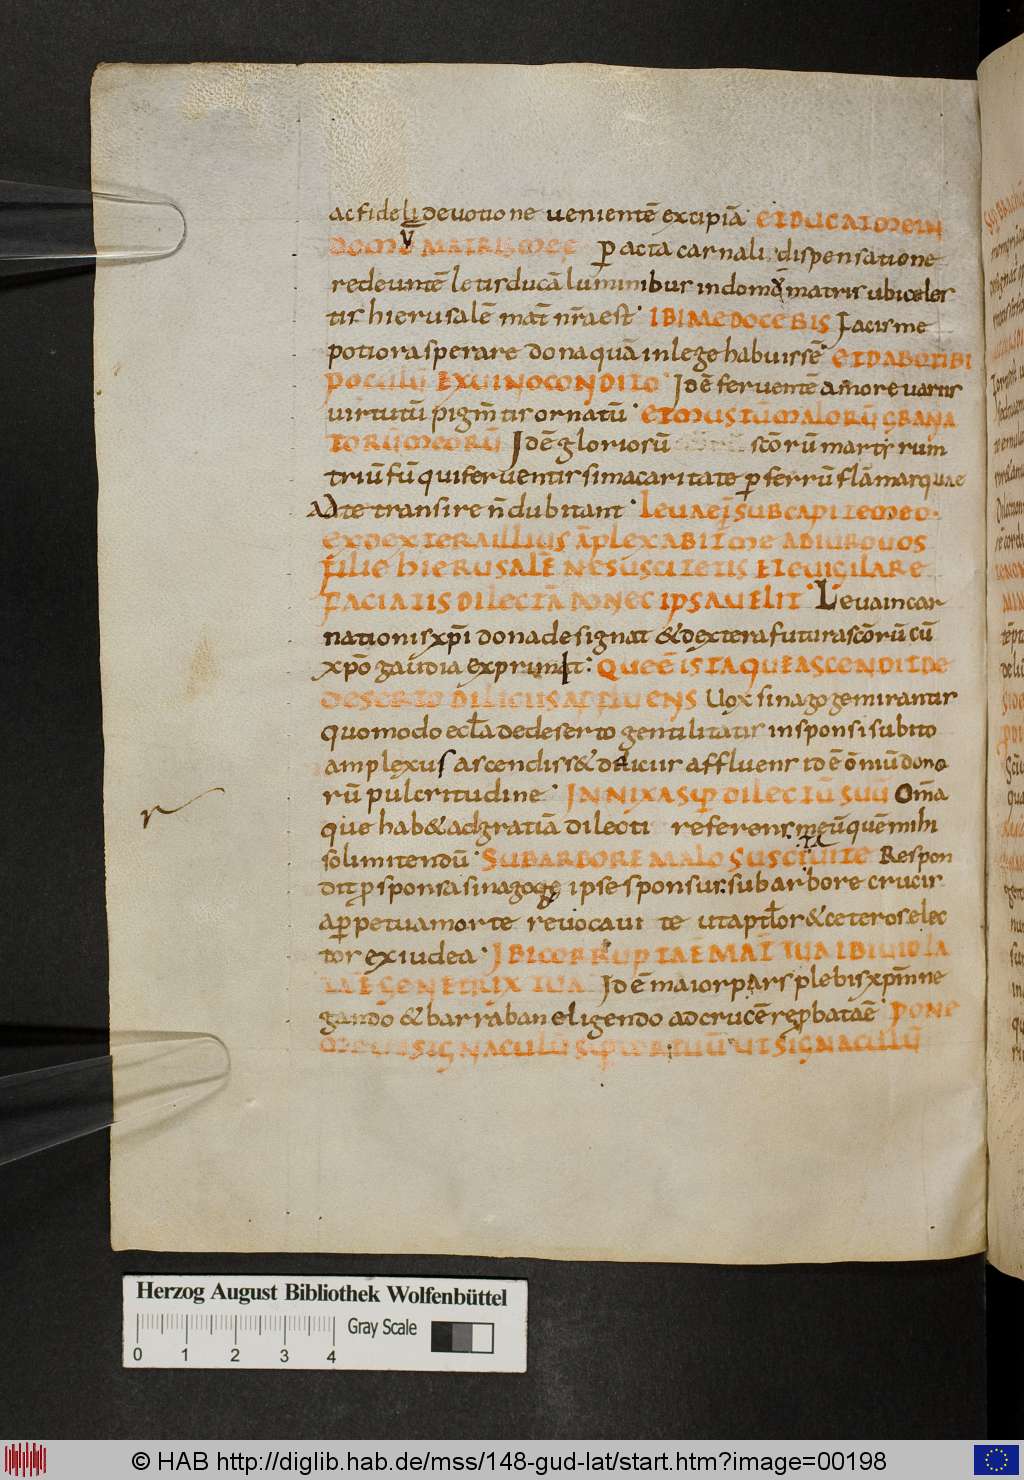 ac fideli deuotione uenientē excipiā· ET DUCAT ME IN
DOMŪ MATRIS MEE p̄acta carnali, dispensatione
redeuntē letis ducā luminibus in domū matris ubi celes
tis hierusalē mat̄ nr̄a est· IBI ME DOCEBIS Jacis me
potiora sperare dona quā in lege habuissē· ET DABO TIBI
POCULŪ EX UINO CONDITO· Jdē feruentē amore uariis
uirtutū pigm̄tis ornatū· ET MUSTŪ MALORŪ GRANA
TORŪ MEORŪ Jdē gloriosū scōrū martyrum
triūfū qui feruentissima caritate p̄ ferrū flāmasquae
Ad te transire n̄ dubitant· Leua ei; SUB CAPITE MEO·
EX DEXTERA ILLIUS ĀPLEXABIT̄ ME ADIURO UOS
FILIE HIERUSALĒ NE SUSCITETIS ET EUIGILARE
FACIATIS DILECTĀ DONEC IPSA UELIT· Leua incar
nationis xp̄i dona designat & dextera futura scōrū cū
xp̄o gaudia exprimit: QUEĒ ISTA QUE ASCENDIT DE
DESERTO DILICIIS AFFLUENS Uox sinagoge mirantis
quomodo eccl̄a de deserto gentilitatis in sponsi subito
amplexus ascendisse & dilicus affluens idē ōniū dono
rū pulcritudine· JNNIXA SUP̄ DILECTŪ SUŪ Om̄a
que hab& ad gratiā dilecti referens meū quē mihi
sōli mitendū· SUB ARBORE MALO SUSCITUI TE Respon
dit p̄ sponsa sinagoge ipse sponsus: sub arbore crucis
a p̄petua morte reuocaui te ut aptl̄os & ceteros elec
tos ex iudea· JBI CORRUPTA Ē MAT̄ TUA IBI UIOLA
TA Ē GENETRIX TUA Jdē maior pars plebis xp̄m ne
gando & barraban eligendo ad crucē rep̄bata ē PONE
ME UT SIGNACULŪ SUP̄ COR TUŪ UT SIGNACULŪ
r
Herzog August Bibliothek Wolfenbüttel
Gray Scale
0 1 2 3 4
© HAB http://diglib.hab.de/mss/148-gud-lat/start.htm?image=00198